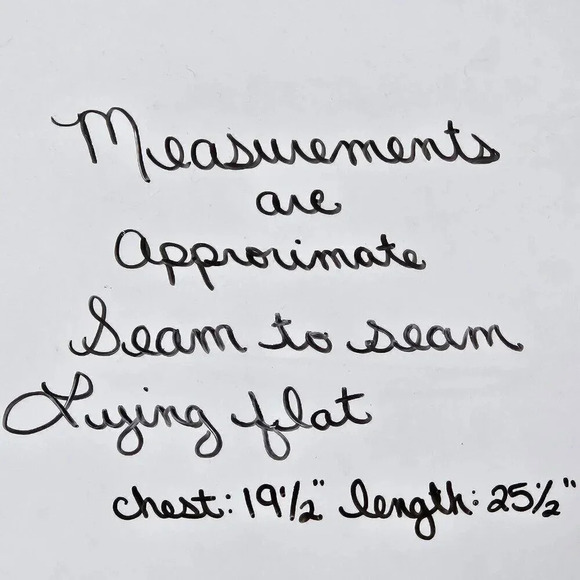 Measurements
are
Approximate
Seam to seam
Lying flat
chest: 19 1/2" length: 25 1/2"